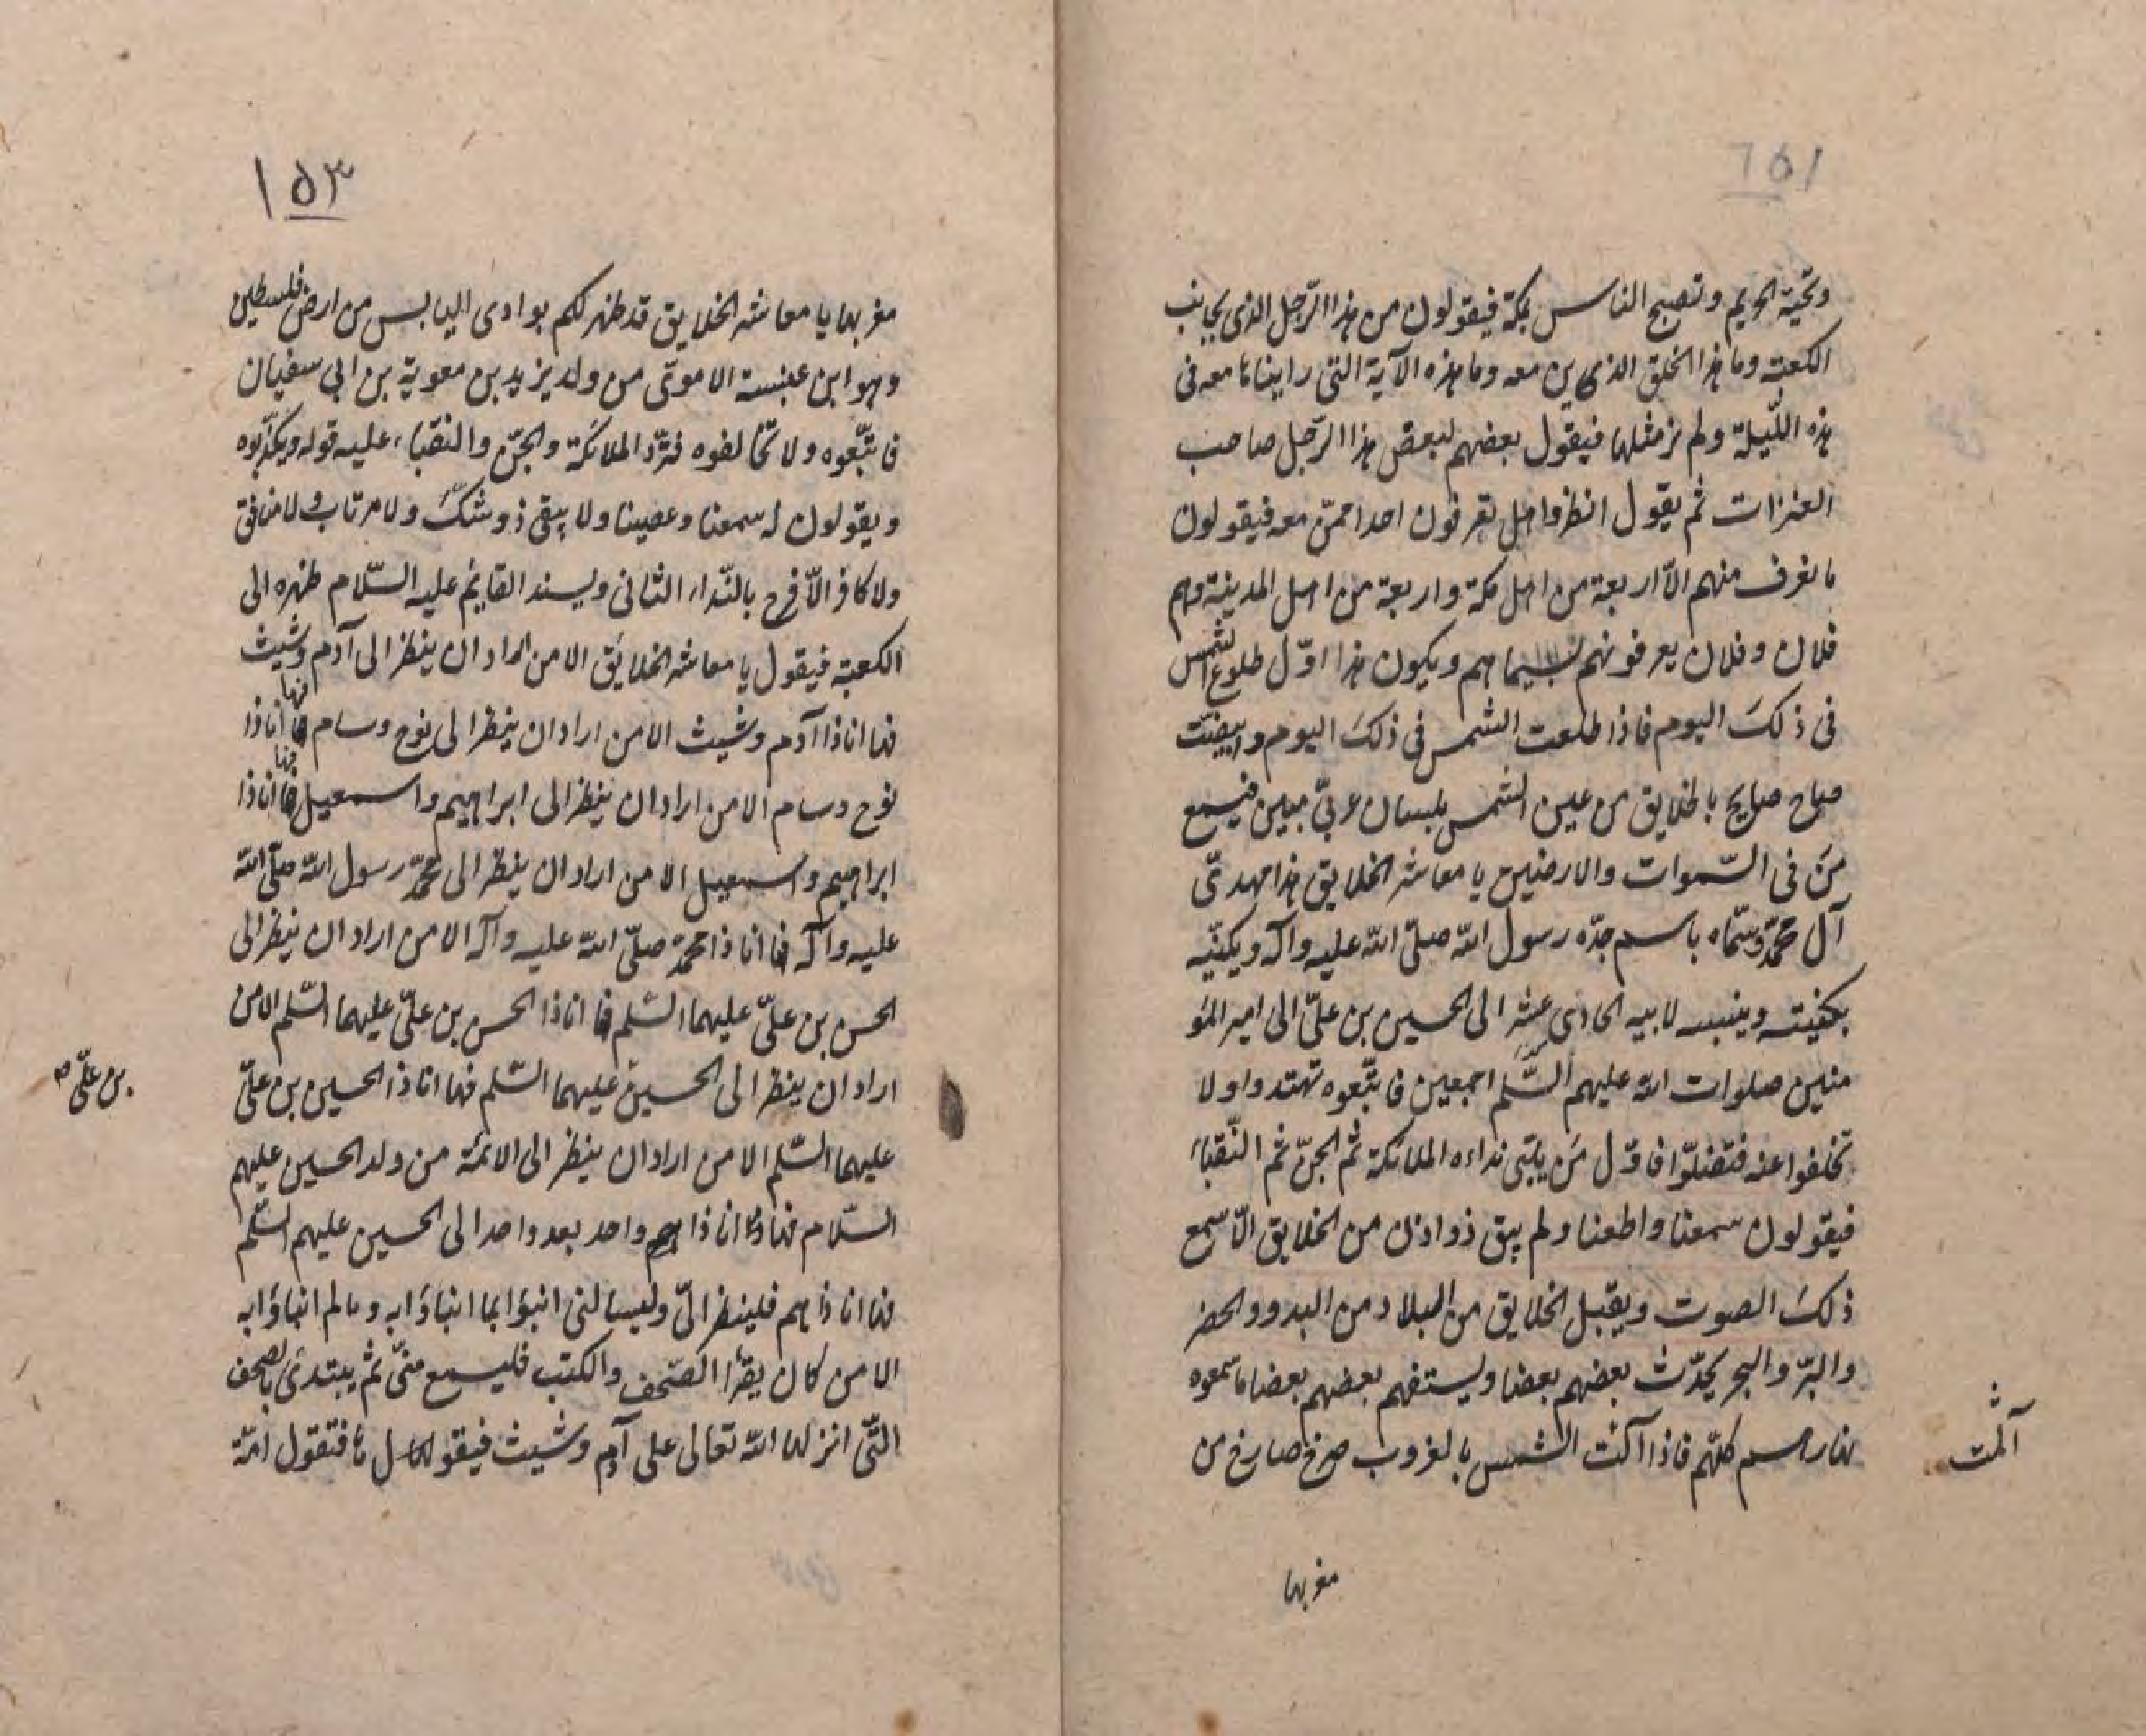 وتحية الحريم وتصبح الناس بمكة فيقولون من هذا الرّجل الذى بجانب
الكعبة وما هذا الخلق الذين معه وما هذه الآية التى رايناها معه فى
هذه اللّيلة ولم نر مثلها فيقول بعضهم لبعض هذا الرّجل صاحب
العنزات ثم يقول انظروا هل تعرفون احدا ممّن معه فيقولون
ما نعرف منهم الّا اربعة من اهل مكة واربعة من اهل المدينة وهم
فلان وفلان يعرفونهم بسيماهم ويكون هذا اوّل طلوع الشمس
فى ذلك اليوم فاذا طلعت الشمس فى ذلك اليوم وابيضّت
صاح صايح بالخلايق من عين الشمس بلسان عربىّ مبين فيسمع
من فى السّموات والارضين يا معاشر الخلايق هذا مهدىّ
آل محمّد وسمّاه باسم جدّه رسول الله صلّى الله عليه وآله ويكنّيه
بكنيته وينسبه لابيه الحادى عشر الى الحسين بن علىّ الى امير المؤ
منين صلوات الله عليهم السّلم اجمعين فاتّبعوه تهتدوا ولا
تخلفوا عنه فتضلّوا فاوّل من يلبّى نداءه الملائكة ثم الجنّ ثم النّقباء
فيقولون سمعنا واطعنا ولم يبق ذو اذن من الخلايق الّا سمع
ذلك الصوت ويقبل الخلايق من البلاد من البدو والحضر
والبرّ والبحر يحدّث بعضهم بعضا ويستفهم بعضهم بعضا ما سمعوه
نهارهم كلّهم فاذا آكنت الشمس بالغروب صرخ صارخ من
آلمت
مغربها
١٥٣
مغربها يا معاشر الخلايق قد ظهر لكم بوادى اليابس من ارض فلسطين
وهو ابن عنبسة الاموىّ من ولد يزيد بن معوية بن ابى سفيان
فاتّبعوه ولا تخالفوه فتردّ الملائكة والجنّ والنقباء عليه قوله ويكذّبوه
ويقولون له سمعنا وعصينا ولا يبقى ذو شكّ ولا مرتاب ولا منافق
ولا كافر الّا فرح بالنّداء الثانى ويسند القايم عليه السّلام ظهره الى
الكعبة فيقول يا معاشر الخلائق الا من اراد ان ينظر الى آدم وشيث
فها انا ذا آدم وشيث الا من اراد ان ينظر الى نوح وسام فها انا ذا
نوح وسام الا من اراد ان ينظر الى ابراهيم واسمعيل فها انا ذا
ابراهيم واسمعيل الا من اراد ان ينظر الى محمّد رسول الله صلّى الله
عليه وآله فها انا ذا محمّد صلّى الله عليه وآله الا من اراد ان ينظر الى
الحسن بن علىّ عليهما السّلم فها انا ذا الحسن بن علىّ عليهما السّلم الا من
اراد ان ينظر الى الحسين عليهما السّلم فها انا ذا الحسين بن علىّ
بن علىّ صح
عليهما السّلم الا من اراد ان ينظر الى الائمّة من ولد الحسين عليهم
السّلام فها انا ذا هم واحد بعد واحد الى الحسين عليهم السّلم
فها انا ذا هم فلينظر الىّ وليسالنى انبؤا بما انباؤا به وما لم انباؤا به
الا من كان يقرأ الصّحف والكتب فليسمع منّى ثم يبتدئ بالصحف
التّى انزلها الله تعالى على آدم وشيث فيقولها فتقول امّة